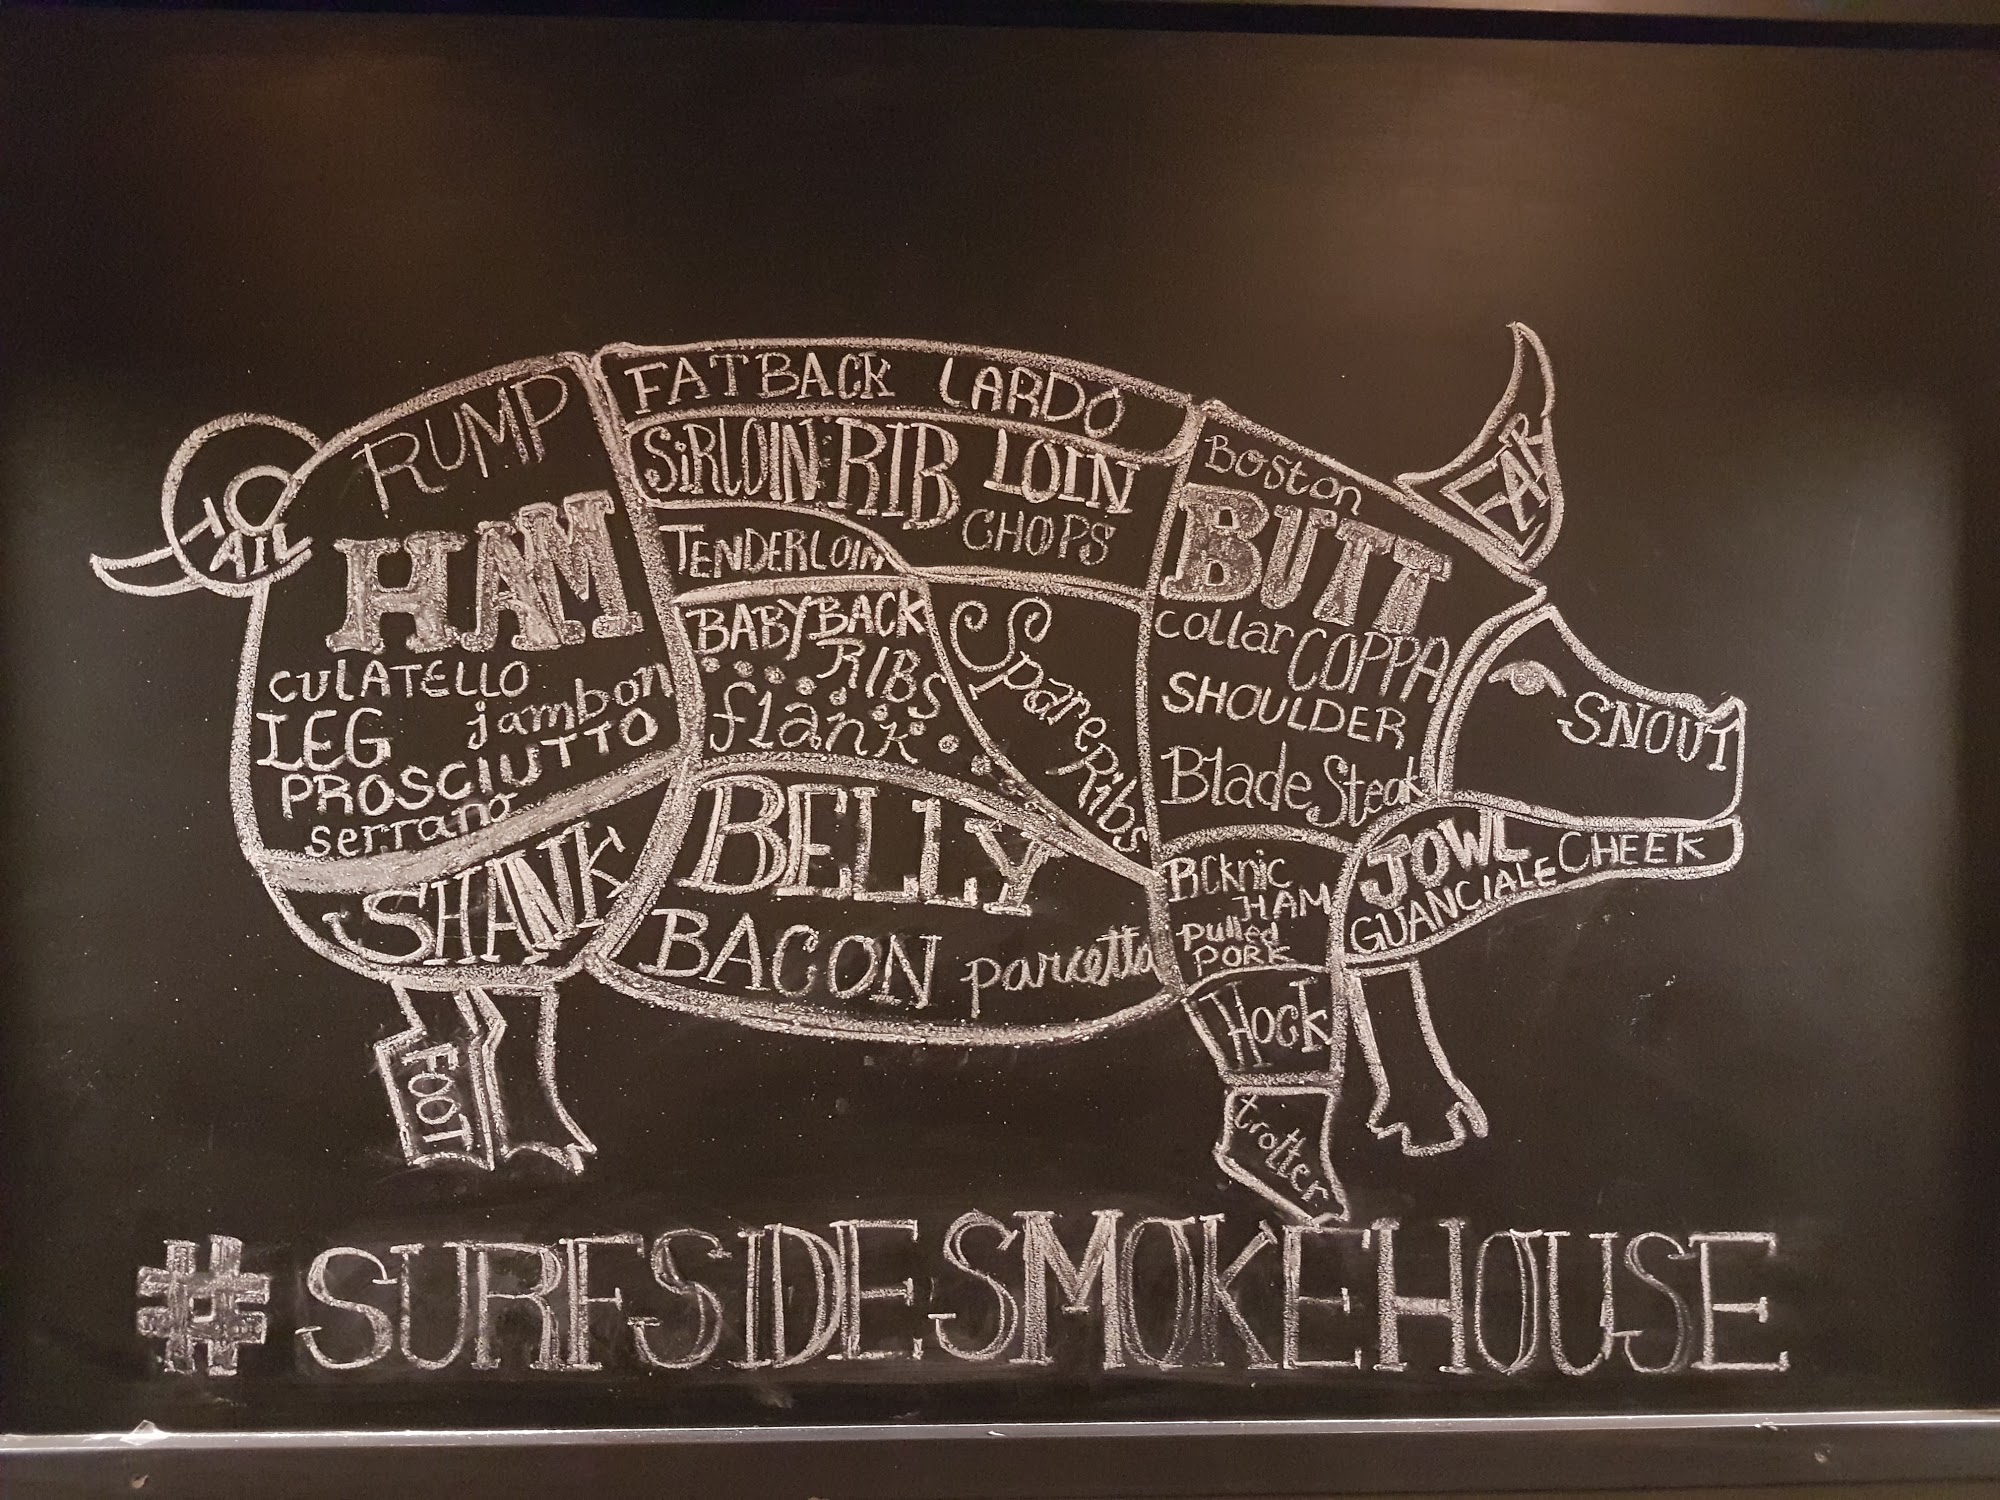 TAIL
RUMP
HAM
CULATELLO
LEG jambon
PROSCIUTTO
serrano
SHANK
FOOT
FATBACK LARDO
SIRLOIN RIB LOIN
CHOPS
TENDERLOIN
BABYBACK
RIBS
flank
SpareRibs
BELLY
BACON parcetta
Boston
BUTT
collar COPPA
SHOULDER
Blade Steak
PICKNIC
HAM
Pulled
PORK
HOCK
trotter
EAR
SNOUT
JOWL
GUANCIALE CHEEK
#SURFSIDESMOKEHOUSE